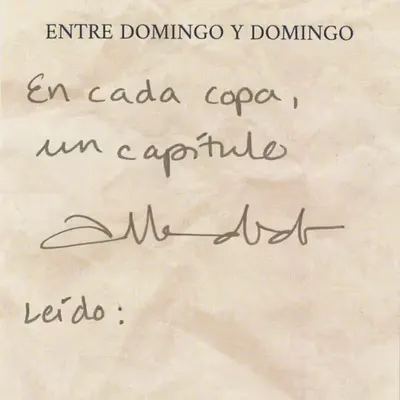 ENTRE DOMINGO Y DOMINGO
En cada copa,
un capítulo
Leído: